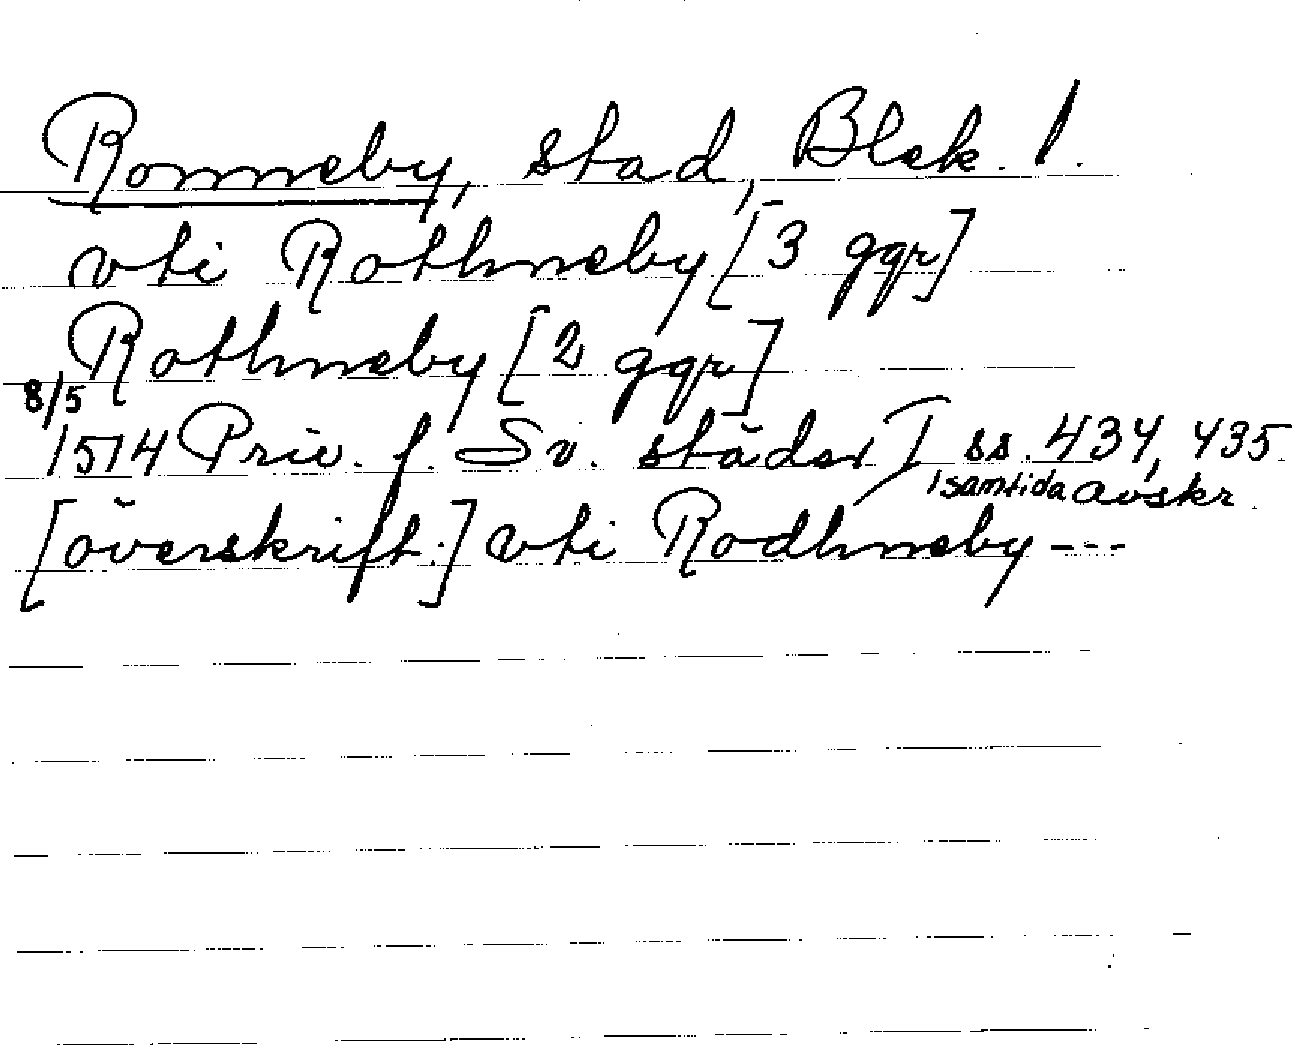 Ronneby, stad, Blek. l.
vti Rothneby [3 ggr]
Rothneby [2 ggr]
8/5
1514 Priv. f. Sv. städer I ss. 434, 435
samtida avskr.
[överskrift:] vti Rodhneby ---